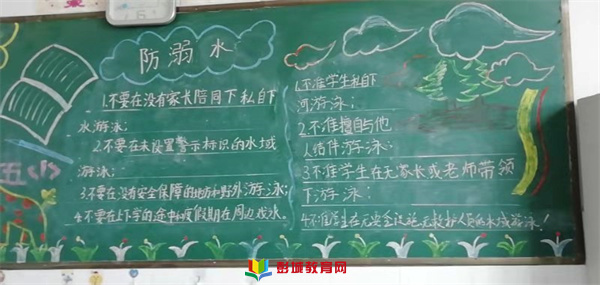 防溺水
1.不要在没有家长陪同下私自下
水游泳；
2.不要在未设置警示标识的水域
游泳；
3.不要在没有安全保障的地方和野外游泳；
4.不要在上下学的途中和度假期在周边戏水。
1.不准学生私自下
河游泳；
2.不准擅自与他
人结伴游泳；
3.不准学生在无家长或老师带领
下游泳；
4.不准学生在无安全设施、无救护人员的水域游泳！
五<1>
彭城教育网